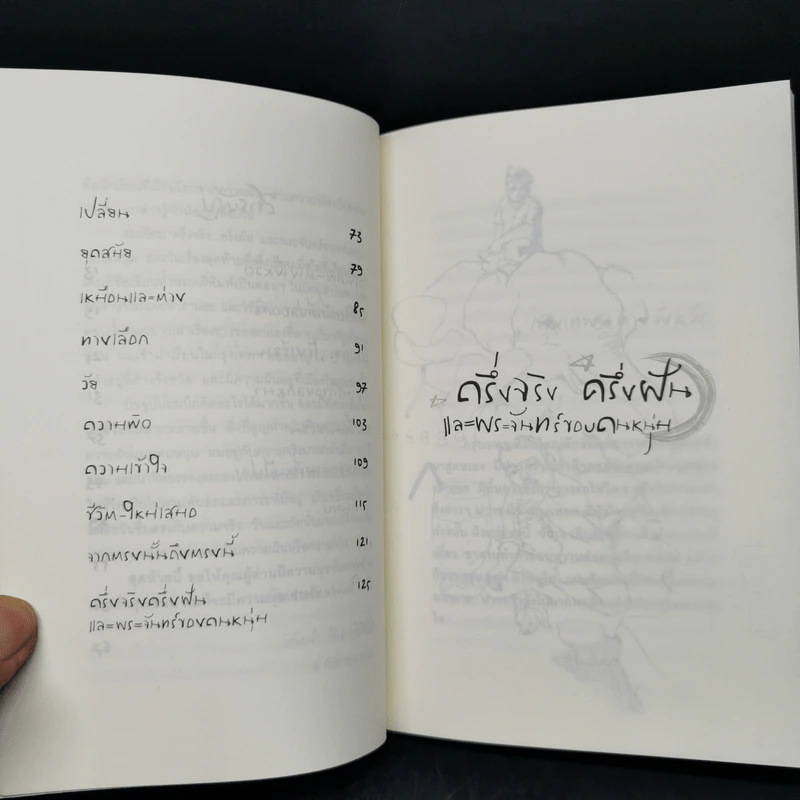 เปลี่ยน
73
ยุคสมัย
79
เหมือนและต่าง
85
ทางเลือก
91
วัย
97
ความผิด
103
ความเข้าใจ
109
ชีวิต-ใหม่เสมอ
115
จากตรงนั้นถึงตรงนี้
121
ครึ่งจริงครึ่งฝัน
และพระจันทร์ของคนหนุ่ม
125
ครึ่งจริง ครึ่งฝัน
และพระจันทร์ของคนหนุ่ม